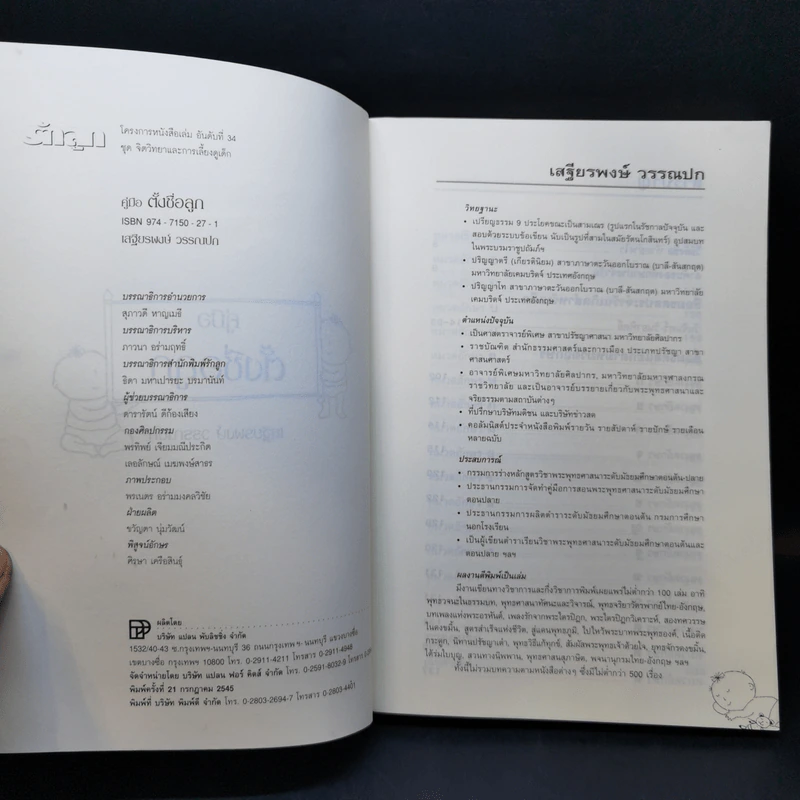 รักลูก
โครงการหนังสือเล่ม อันดับที่ 34
ชุด จิตวิทยาและการเลี้ยงดูเด็ก
คู่มือ ตั้งชื่อลูก
ISBN 974 - 7150 - 27 - 1
เสฐียรพงษ์ วรรณปก
บรรณาธิการอำนวยการ
สุภาวดี หาญเมธี
บรรณาธิการบริหาร
ภาวนา อร่ามฤทธิ์
บรรณาธิการสำนักพิมพ์รักลูก
ธิดา มหาเปารยะ บรมานันท์
ผู้ช่วยบรรณาธิการ
ดารารัตน์ ตีก้องเสียง
กองศิลปกรรม
พรทิพย์ เจียมมณีประกิต
เลอลักษณ์ เมฆพงษ์สาธร
ภาพประกอบ
พรเนตร อร่ามมงคลวิชัย
ฝ่ายผลิต
ขวัญตา นุ่มวัฒน์
พิสูจน์อักษร
ศิรษา เครือสินธุ์
ผลิตโดย
บริษัท แปลน พับลิชชิ่ง จำกัด
1532/40-43 ซ.กรุงเทพฯ-นนทบุรี 36 ถนนกรุงเทพฯ-นนทบุรี แขวงบางซื่อ
เขตบางซื่อ กรุงเทพฯ 10800 โทร. 0-2911-4211 โทรสาร 0-2911-4948
จัดจำหน่ายโดย บริษัท แปลน ฟอร์ คิดส์ จำกัด โทร. 0-2591-8032-9 โทรสาร 0-259
พิมพ์ครั้งที่ 21 กรกฎาคม 2545
พิมพ์ที่ บริษัท พิมพ์ดี จำกัด โทร. 0-2803-2694-7 โทรสาร 0-2803-4401
เสฐียรพงษ์ วรรณปก
วิทยฐานะ
• เปรียญธรรม 9 ประโยคขณะเป็นสามเณร (รูปแรกในรัชกาลปัจจุบัน และ
สอบด้วยระบบข้อเขียน นับเป็นรูปที่สามในสมัยรัตนโกสินทร์) อุปสมบท
ในพระบรมราชูปถัมภ์ฯ
• ปริญญาตรี (เกียรตินิยม) สาขาภาษาตะวันออกโบราณ (บาลี-สันสกฤต)
มหาวิทยาลัยเคมบริดจ์ ประเทศอังกฤษ
• ปริญญาโท สาขาภาษาตะวันออกโบราณ (บาลี-สันสกฤต) มหาวิทยาลัย
เคมบริดจ์ ประเทศอังกฤษ
ตำแหน่งปัจจุบัน
• เป็นศาสตราจารย์พิเศษ สาขาปรัชญาศาสนา มหาวิทยาลัยศิลปากร
• ราชบัณฑิต สำนักธรรมศาสตร์และการเมือง ประเภทปรัชญา สาขา
ศาสนศาสตร์
• อาจารย์พิเศษมหาวิทยาลัยศิลปากร, มหาวิทยาลัยมหาจุฬาลงกรณ
ราชวิทยาลัย และเป็นอาจารย์บรรยายเกี่ยวกับพระพุทธศาสนาและ
จริยธรรมตามสถาบันต่างๆ
• ที่ปรึกษาบริษัทมติชน และบริษัทข่าวสด
• คอลัมนิสต์ประจำหนังสือพิมพ์รายวัน รายสัปดาห์ รายปักษ์ รายเดือน
หลายฉบับ
ประสบการณ์
• กรรมการร่างหลักสูตรวิชาพระพุทธศาสนาระดับมัธยมศึกษาตอนต้น-ปลาย
• ประธานกรรมการจัดทำคู่มือการสอนพระพุทธศาสนาระดับมัธยมศึกษา
ตอนปลาย
• ประธานกรรมการผลิตตำราระดับมัธยมศึกษาตอนต้น กรมการศึกษา
นอกโรงเรียน
• เป็นผู้เขียนตำราเรียนวิชาพระพุทธศาสนาระดับมัธยมศึกษาตอนต้นและ
ตอนปลาย ฯลฯ
ผลงานตีพิมพ์เป็นเล่ม
มีงานเขียนทางวิชาการและกึ่งวิชาการพิมพ์เผยแพร่ไม่ต่ำกว่า 100 เล่ม อาทิ
พุทธวจนะในธรรมบท, พุทธศาสนาทัศนะและวิจารณ์, พุทธจริยาวัตรพากย์ไทย-อังกฤษ,
บทเพลงแห่งพระอรหันต์, เพลงรักจากพระไตรปิฎก, พระไตรปิฎกวิเคราะห์, สองทศวรรษ
ในดงขมิ้น, สูตรสำเร็จแห่งชีวิต, สู่แดนพุทธภูมิ, ไปไหว้พระบาทพระพุทธองค์, เนื้อติด
กระดูก, นิทานปรัชญาเต๋า, พุทธวิธีแก้ทุกข์, สัมผัสพระพุทธเจ้าด้วยใจ, ยุทธจักรดงขมิ้น,
ใต้ร่มใบบุญ, สวนทางนิพพาน, พุทธศาสนสุภาษิต, พจนานุกรมไทย-อังกฤษ ฯลฯ
ทั้งนี้ไม่รวมบทความตามหนังสือต่างๆ ซึ่งมีไม่ต่ำกว่า 500 เรื่อง